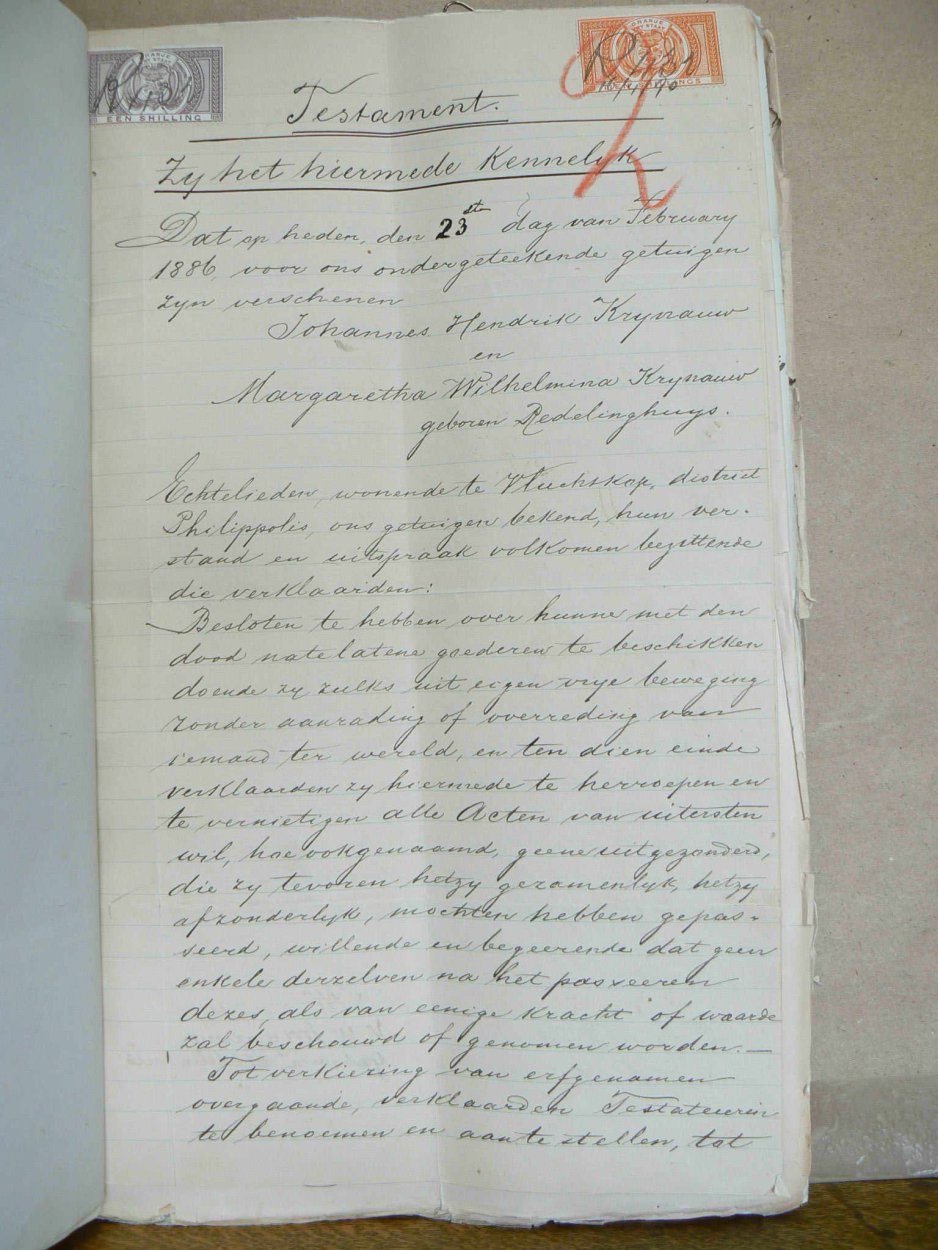 ORANJE
VRY STAAT
EEN SHILLING
ORANJE
VRY STAAT
SHILLINGS
Testament.
Zy het hiermede Kennelyk
Dat op heden, den 23ste dag van February
1886, voor ons ondergeteekende getuigen
zyn verschenen
Johannes Hendrik Krynauw
en
Margaretha Wilhelmina Krynauw
geboren Redelinghuys.
Echtelieden, wonende te Vluchtskop, district
Philippolis, ons getuigen bekend, hun ver-
stand en uitspraak volkomen bezittende
die verklaarden:
Besloten te hebben over hunne met den
dood natelatene goederen te beschikken
doende zy zulks uit eigen vrye beweging
zonder aanrading of overreding van
iemand ter wereld, en ten dien einde
verklaarden zy hiermede te herroepen en
te vernietigen alle Acten van uitersten
wil, hoe ookgenaamd, geene uitgezonderd,
die zy tevoren hetzy gezamenlyk, hetzy
afzonderlyk, mochten hebben gepas-
seerd, willende en begeerende dat geen
enkele derzelven na het passeeren
dezes, als van eenige kracht of waarde
zal beschouwd of genomen worden.—
Tot verkiezing van erfgenamen
overgaande, verklaarden Testateuren
te benoemen en aan te stellen, tot